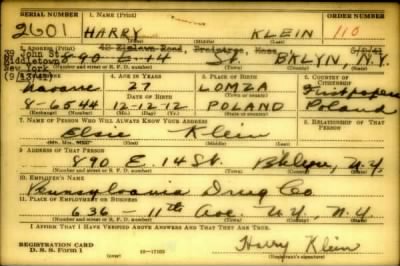 SERIAL NUMBER 1. NAME (Print) ORDER NUMBER
2601 HARRY KLEIN 110
(First) (Middle) (Last)
39 John St. 2. ADDRESS (Print) 48 Elmlawn Road, Braintree, Mass.
Middletown 890 E-14 St. BKLYN, N.Y.
New York (Number and street or R. F. D. number) (Town) (County) (State)
3. TELEPHONE 4. AGE IN YEARS 5. PLACE OF BIRTH 6. COUNTRY OF CITIZENSHIP
Navarre 27 LOMZA First papers
DATE OF BIRTH (Town or county)
8-6544 12-12-12 POLAND Poland
(Exchange) (Number) (Mo.) (Day) (Yr.) (State or country)
7. NAME OF PERSON WHO WILL ALWAYS KNOW YOUR ADDRESS 8. RELATIONSHIP OF THAT PERSON
Elsie Klein
(Mr., Mrs., Miss) (First) (Middle) (Last)
9. ADDRESS OF THAT PERSON
890 E. 14 St. Bklyn, N.Y.
(Number and street or R. F. D. number) (Town) (County) (State)
10. EMPLOYER'S NAME
Pennsylvania Drug Co.
11. PLACE OF EMPLOYMENT OR BUSINESS
636 11th Ave. N.Y., N.Y.
(Number and street or R. F. D. number) (Town) (County) (State)
I AFFIRM THAT I HAVE VERIFIED ABOVE ANSWERS AND THAT THEY ARE TRUE.
REGISTRATION CARD Harry Klein
D. S. S. Form 1 (over) 16—17105 (Registrant's signature)